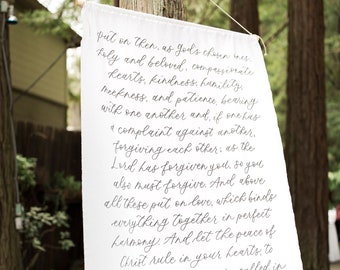 put on then, as God's chosen ones,
holy and beloved, compassionate
hearts, kindness, humility,
meekness, and patience, bearing
with one another and, if one has
a complaint against another,
forgiving each other; as the
Lord has forgiven you, so you
also must forgive. And above
all these put on love, which binds
everything together in perfect
harmony. And let the peace of
Christ rule in your hearts, to
called in